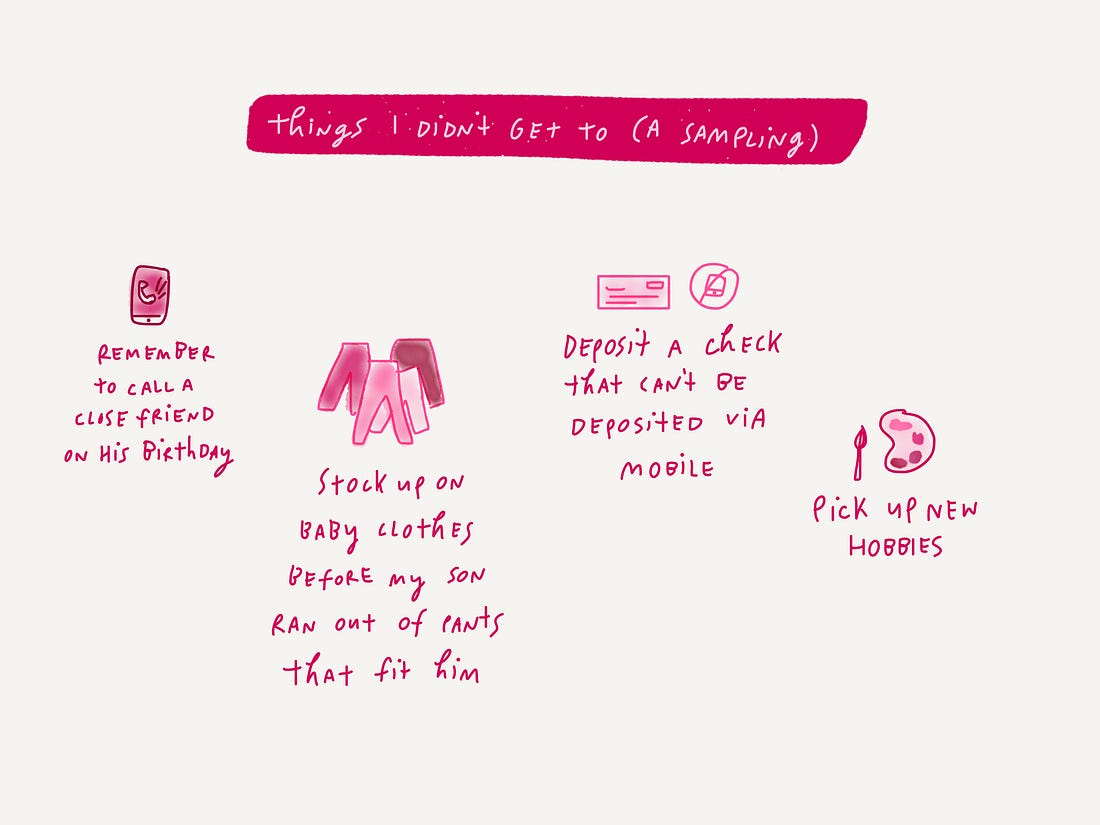 things I DIDN't GET to (A SAMPLING)
REMEMBER
to CALL A
CLOSE fRiEND
ON His BirthDAY
Stock up ON
BABy clothes
BEfORE my SON
RAN out of PANtS
thAt fit him
DEposit A chECK
thAt CAN't BE
DEPOSitED viA
MOBiLE
Pick UP NEW
HOBBIES